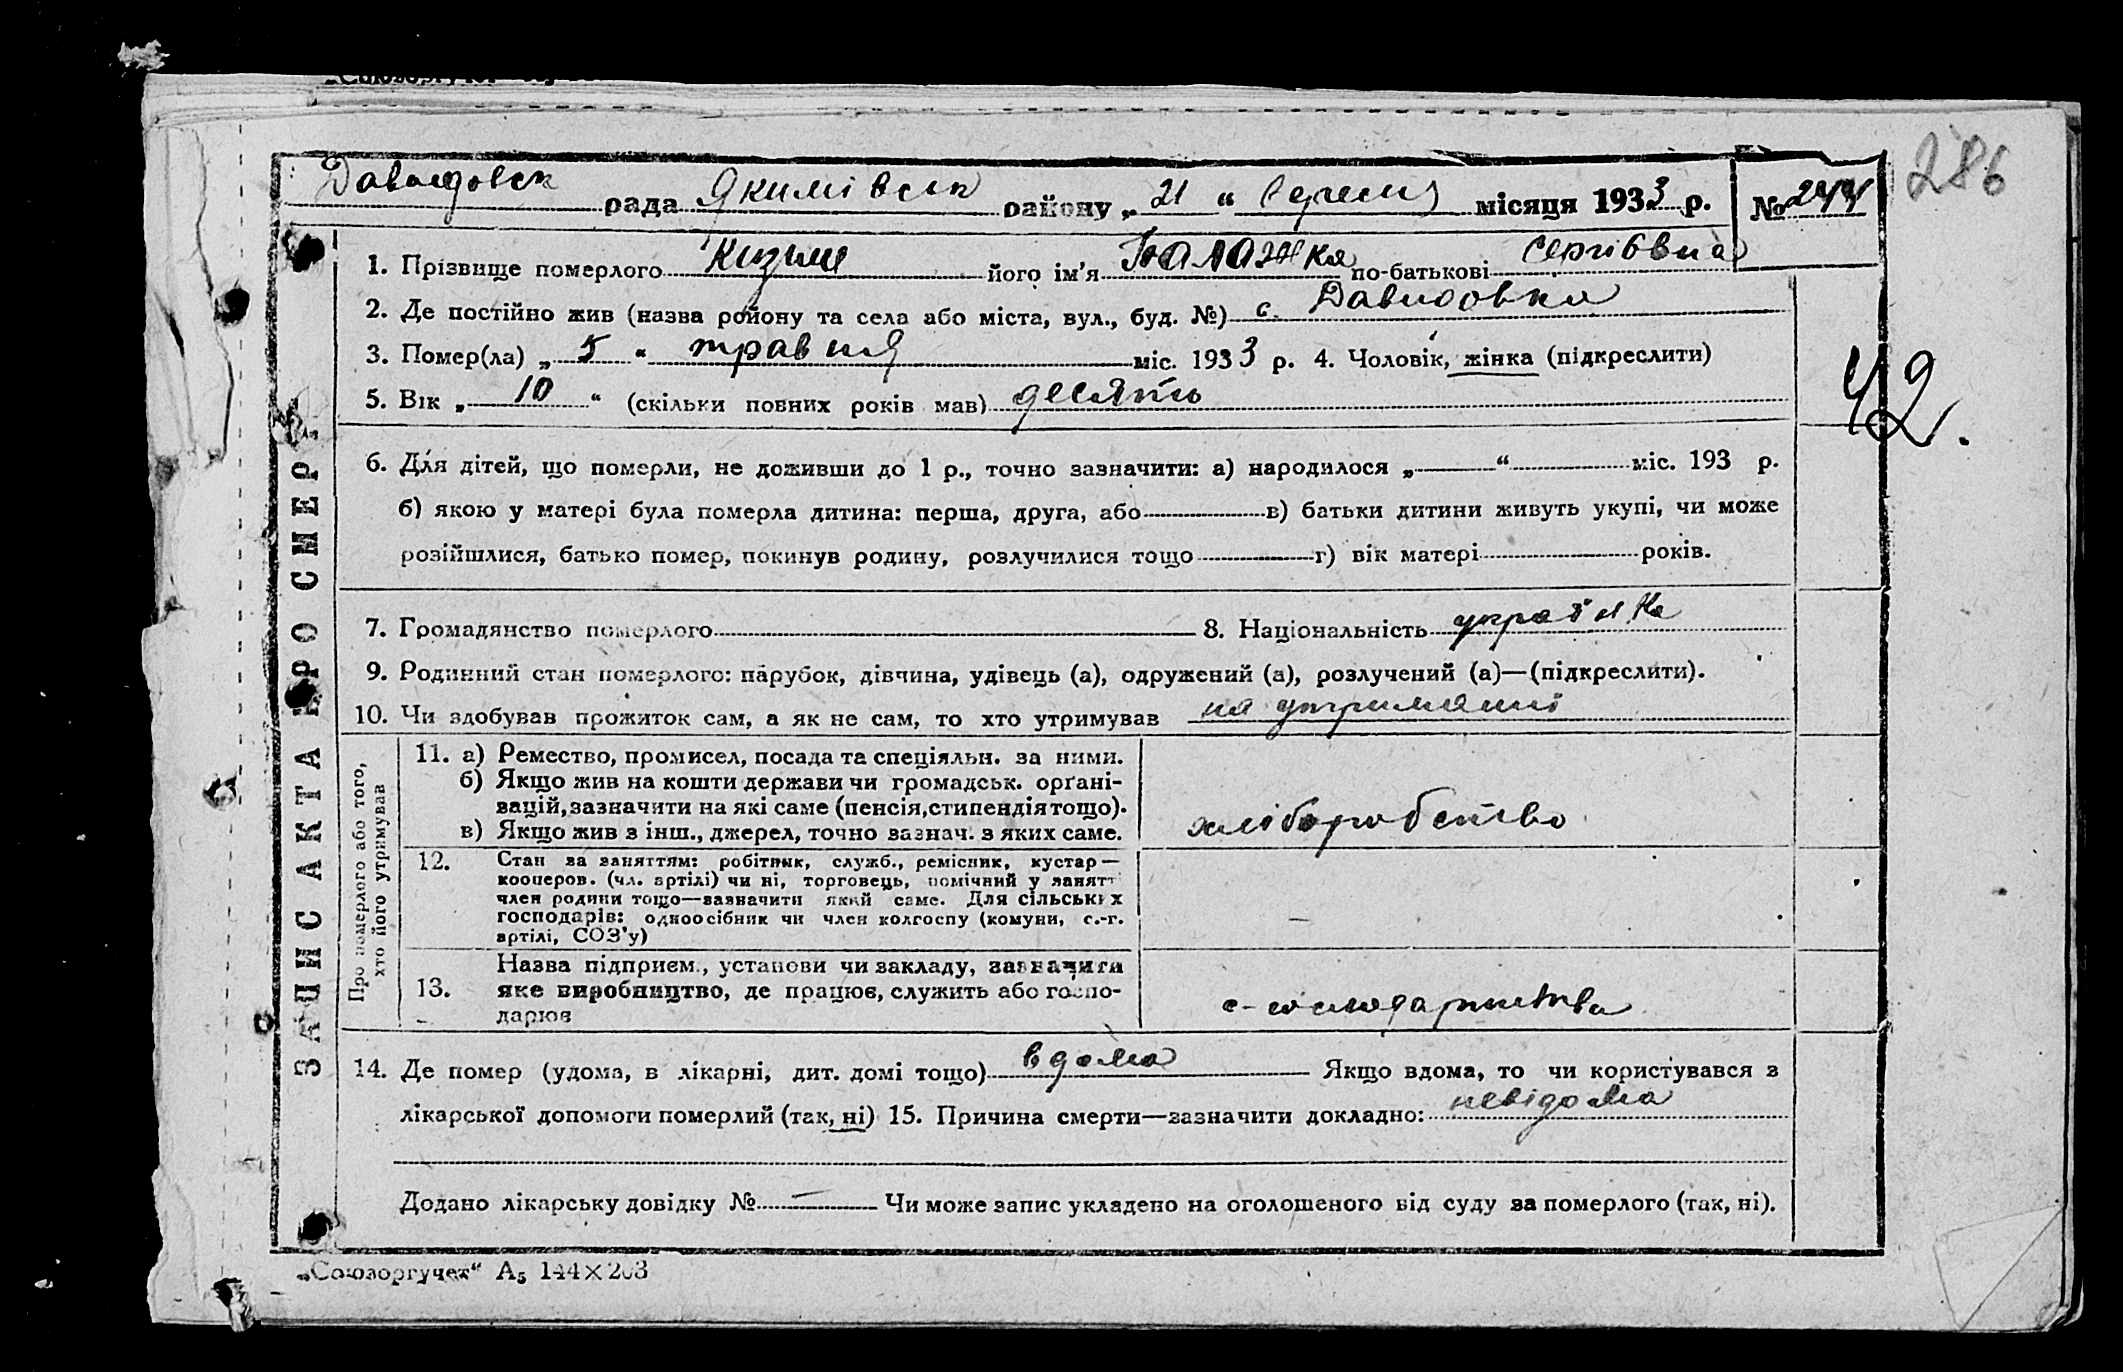 286
Давидовск рада Якимівськ району „ 21 “ вересня місяця 1933 р. № 244
1. Прізвище померлого його ім'я по-батькові Сергіївна
2. Де постійно жив (назва району та села або міста, вул., буд. №) с. Давидовка
3. Помер(ла) „ 5 “ травня міс. 1933 р. 4. Чоловік, жінка (підкреслити)
42.
5. Вік „ 10 “ (скільки повних років мав) десять
6. Для дітей, що померли, не доживши до 1 р., точно зазначити: а) народилося „ “ міс. 193 р.
б) якою у матері була померла дитина: перша, друга, або в) батьки дитини живуть укупі, чи може
розійшлися, батько помер, покинув родину, розлучилися тощо г) вік матері років.
7. Громадянство померлого 8. Національність українка
9. Родинний стан померлого: парубок, дівчина, удівець (а), одружений (а), розлучений (а)—(підкреслити).
10. Чи здобував прожиток сам, а як не сам, то хто утримував на утриманні
ЗАПИС АКТА ПРО СМЕРТЬ
Про померлого або того,
хто його утримував
11. а) Ремество, промисел, посада та спеціяльн. за ними.
б) Якщо жив на кошти держави чи громадськ. орґані-
зацій, зазначити на які саме (пенсія, стипендія тощо).
в) Якщо жив з інш., джерел, точно зазнач. з яких саме.
хліборобство
12. Стан за заняттям: робітник, служб., ремісник, кустар—
кооперов. (чл. артілі) чи ні, торговець, помічний у занятт
член родини тощо—зазначити який саме. Для сільських
господарів: одноосібник чи член колгоспу (комуни, с.-г.
артілі, СОЗ'у)
—
13. Назва підприєм., установи чи закладу, зазначити
яке виробництво, де працює, служить або госпо-
дарює
14. Де помер (удома, в лікарні, дит. домі тощо) вдома Якщо вдома, то чи користувався з
лікарської допомоги померлий (так, ні) 15. Причина смерти—зазначити докладно: невідома
Додано лікарську довідку № — Чи може запис укладено на оголошеного від суду за померлого (так, ні).
„Союзоргучет“ А₅ 144×203